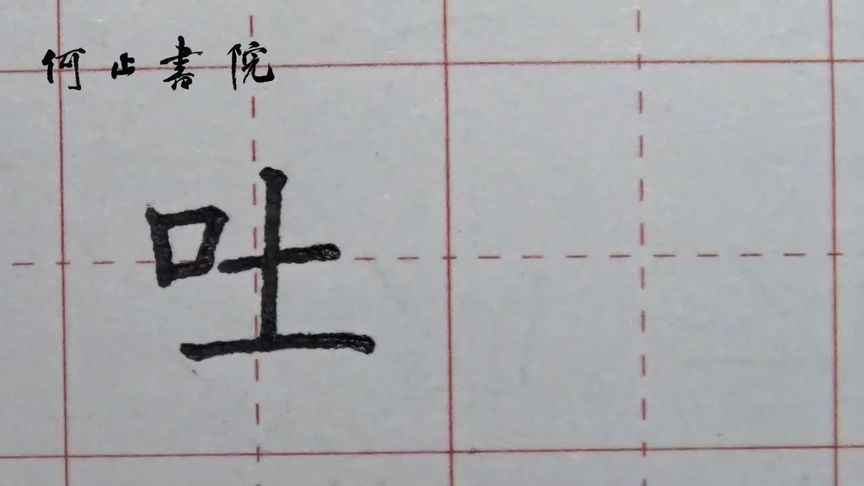 何止書院
吐